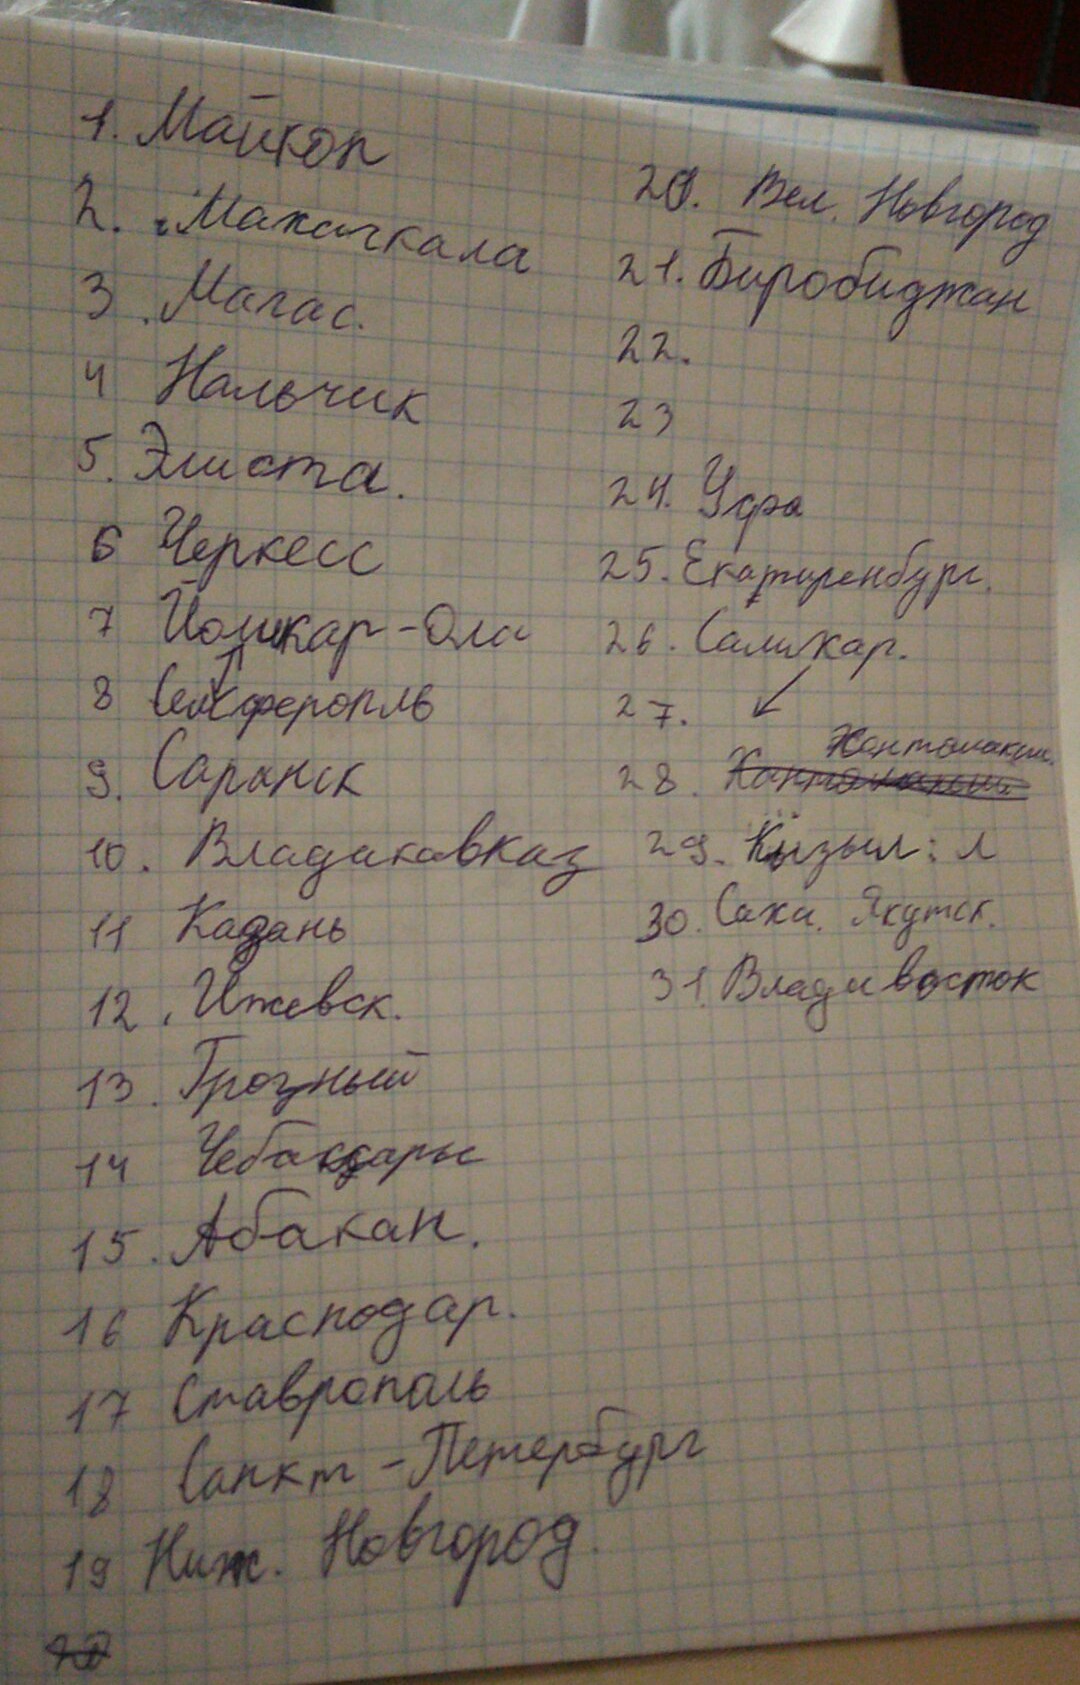 1. Майкоп
2. Махачкала
3. Магас.
4 Нальчик
5. Элиста.
6 Черкесс
7 Йошкар-Ола
8 Симферопль
9. Саранск
10. Владикавказ
11 Казань
12. Ижевск.
13. Грозный
14 Чебаксары
15. Абакан.
16 Красnодар.
17 Ставрополь
18 Санкт-Петербург
19 Ниж. Новгород.
20
20. Вел. Новгород
21. Биробиджан
22.
23
24. Уфа
25. Екатиренбург.
26. Салихар.
27.
Хантомакси.
28.
29. Кызыл: л
30. Саха. Якутск.
31. Владивосток